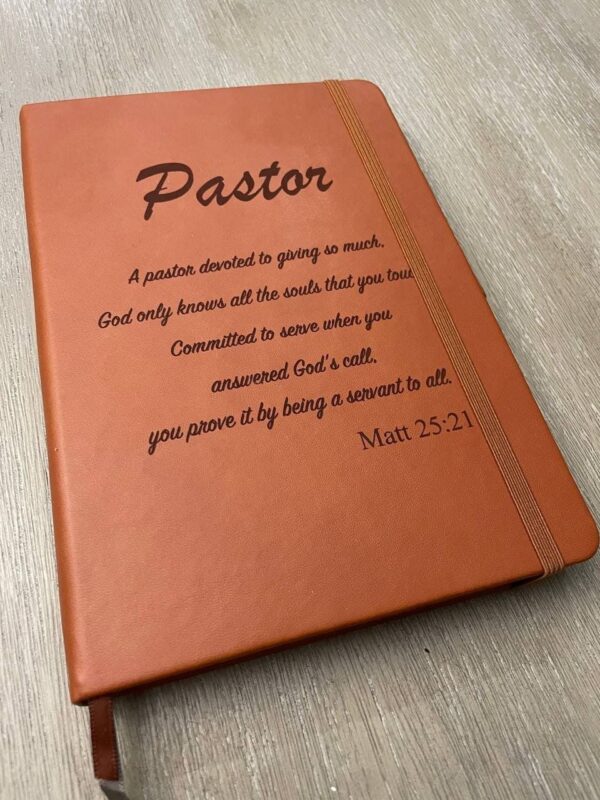 Pastor
A pastor devoted to giving so much.
God only knows all the souls that you
Committed to serve when you
answered God's call,
you prove it by being a servant to all.
Matt 25:21